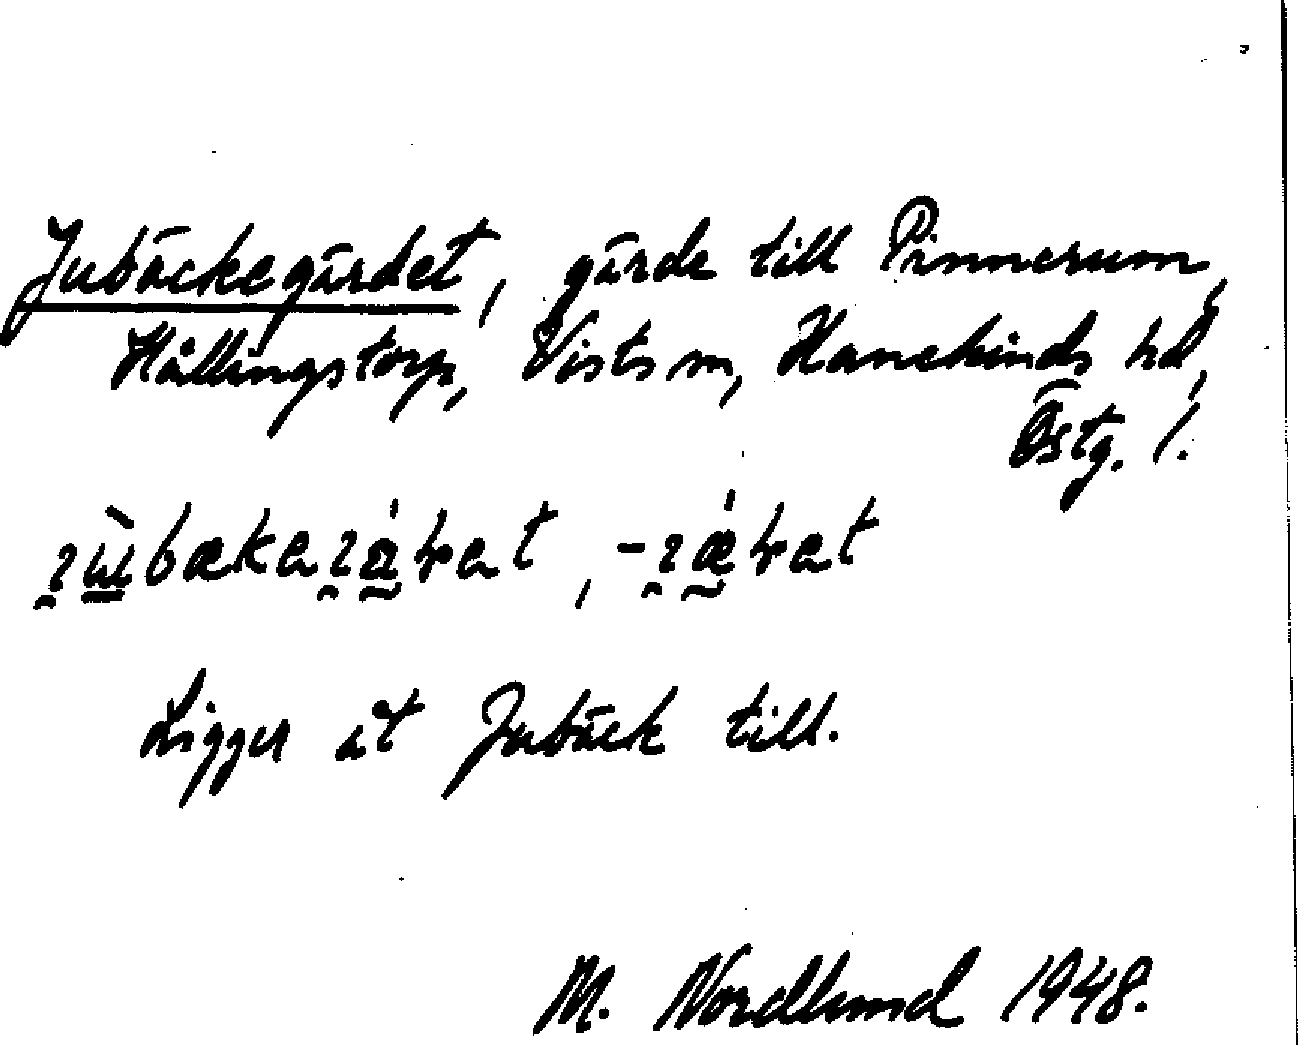 Jubäckegärdet, gärde till Pinnerum,
Hållingstorp, Vists sn, Hanekinds hd,
Östg. l.
Ligger åt Jubäck till.
M. Nordlund 1948.